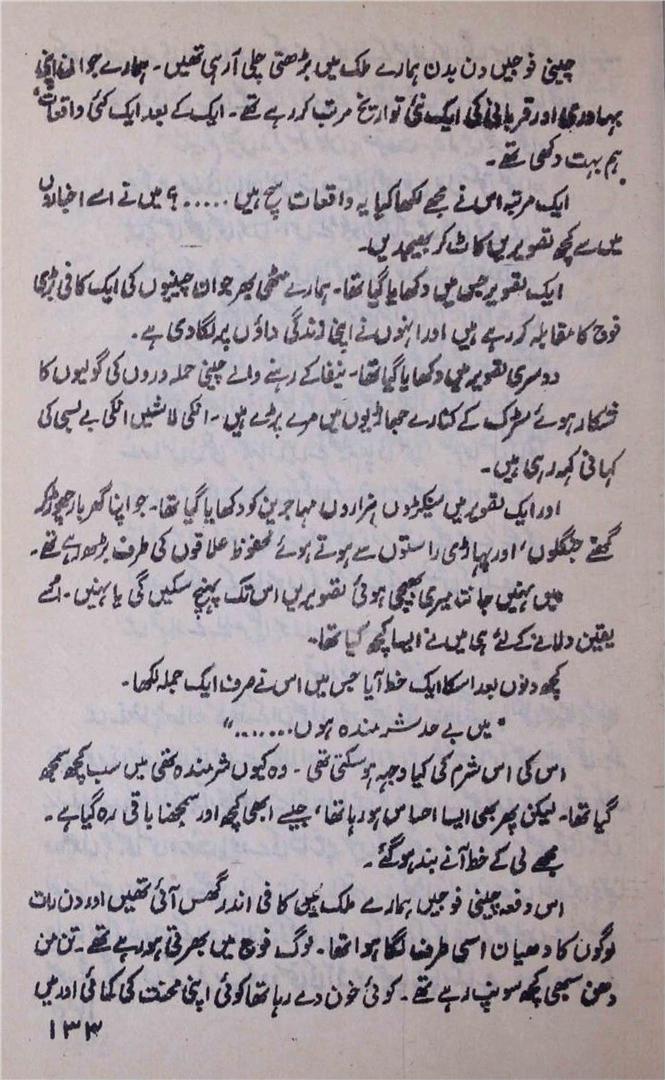 چینی فوجیں دن بدن ہمارے ملک میں بڑھتی چلی آ رہی تھیں۔ ہمارے جوان اپنی
بہادری اور قربانی کی ایک نئی تواریخ مرتب کر رہے تھے۔ ایک کے بعد ایک کئی واقعات،
ہم بہت دکھی تھے۔
ایک مرتبہ اس نے مجھے لکھا کیا یہ واقعات سچ ہیں .....؟ میں نے اسے اخباروں
میں سے کچھ تصویریں کاٹ کر بھیجدیں۔
ایک تصویر جس میں دکھایا گیا تھا۔ ہمارے مٹھی بھر جوان چینیوں کی ایک کافی بڑی
فوج کا مقابلہ کر رہے ہیں اور انہوں نے اپنی زندگی داؤں پہ لگا دی ہے۔
دوسری تصویر میں دکھایا گیا تھا۔ نیفا کے رہنے والے چینی حملہ وروں کی گولیوں کا
شکار ہوئے سڑک کے کنارے جھاڑیوں میں مرے پڑے ہیں۔ انکی لاشیں انکی بے بسی کی
کہانی کہہ رہی ہیں۔
اور ایک تصویر میں سیکڑوں ہزاروں مہاجرین کو دکھایا گیا تھا۔ جو اپنا گھر بار چھوڑ کر
گھنے جنگلوں، اور پہاڑی راستوں سے ہوتے ہوئے محفوظ علاقوں کی طرف بڑھ رہے تھے۔
میں نہیں جانتا میری بھیجی ہوئی تصویریں اس تک پہنچ سکیں گی یا نہیں۔ اُسے
یقین دلانے کے لئے ہی میں نے ایسا کچھ کیا تھا۔
کچھ دنوں بعد اسکا ایک خط آیا جس میں اس نے صرف ایک جملہ لکھا۔
"میں بے حد شرمندہ ہوں ......."
اس کی اس شرم کی کیا وجہہ ہو سکتی تھی۔ وہ کیوں شرمندہ تھی میں سب کچھ سمجھ
گیا تھا۔ لیکن پھر بھی ایسا احساس ہو رہا تھا، جیسے ابھی کچھ اور سمجھنا باقی رہ گیا ہے۔
مجھے لی کے خط آنے بند ہو گئے۔
اس دفعہ چینی فوجیں ہمارے ملک میں کافی اندر گھس آئی تھیں اور دن رات
لوگوں کا دھیان اسی طرف لگا ہوا تھا۔ لوگ فوج میں بھرتی ہو رہے تھے۔ تن من
دھن سبھی کچھ سونپ رہے تھے۔ کوئی خون دے رہا تھا کوئی اپنی محنت کی کمائی اور میں
۱۳۳